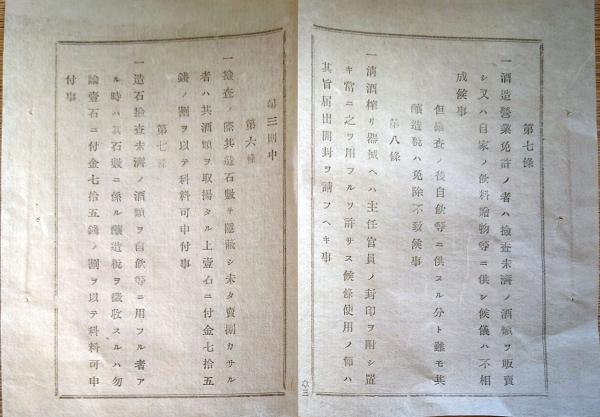 第七條
一酒造營業免許ノ者ハ撿査未濟ノ酒類ヲ販賣
シ又ハ自家ノ飲料贈物等ニ供シ候儀ハ不相
成候事
但撿査ノ後自飲等ニ供スル分ト雖モ其
釀造稅ハ免除不致候事
第八條
一清酒榨リ器械ヘハ主任官員ノ封印ヲ附シ置
キ常ニ之ヲ用フルヲ許サス候條使用ノ節ハ
其旨届出開封ヲ請フヘキ事
三
第三則中
第六條
一撿査ノ際其造石數ヲ隱蔽シ未タ賣捌カサル
者ハ其酒類ヲ取揚タル上壹石ニ付金七拾五
錢ノ割ヲ以テ科料可申付事
第七條
一造石撿査未濟ノ酒類ヲ自飲等ニ用フル者ア
ル時ハ其石數ニ係ル釀造稅ヲ徵收スルハ勿
論壹石ニ付金七拾五錢ノ割ヲ以テ科料可申
付事